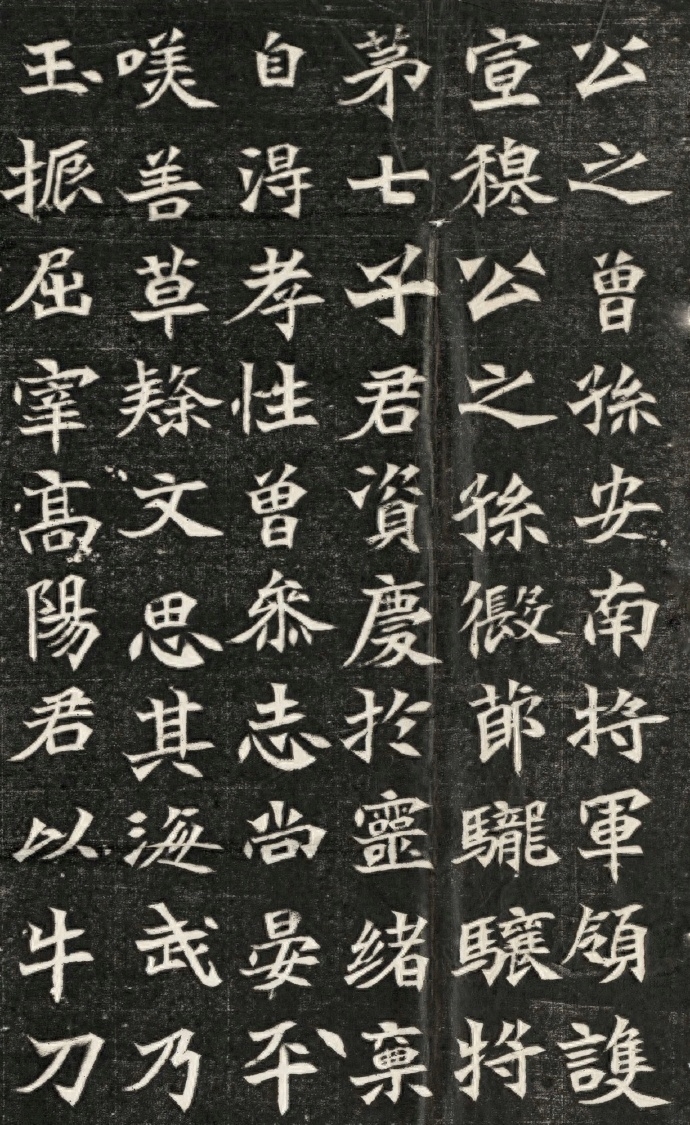 公之曾孫安南將軍領護
宣穆公之孫假節驤驤將
苐七子君資慶於靈緒禀
自淂孝性曾叅志尚晏平
嘆善草䋣文思其海武乃
王振屈宰髙陽君以牛刀